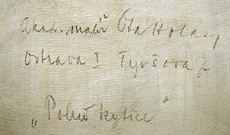 Akad. malíř Ota Holas,
Ostrava I Tyršova 7
„Polní kytice"